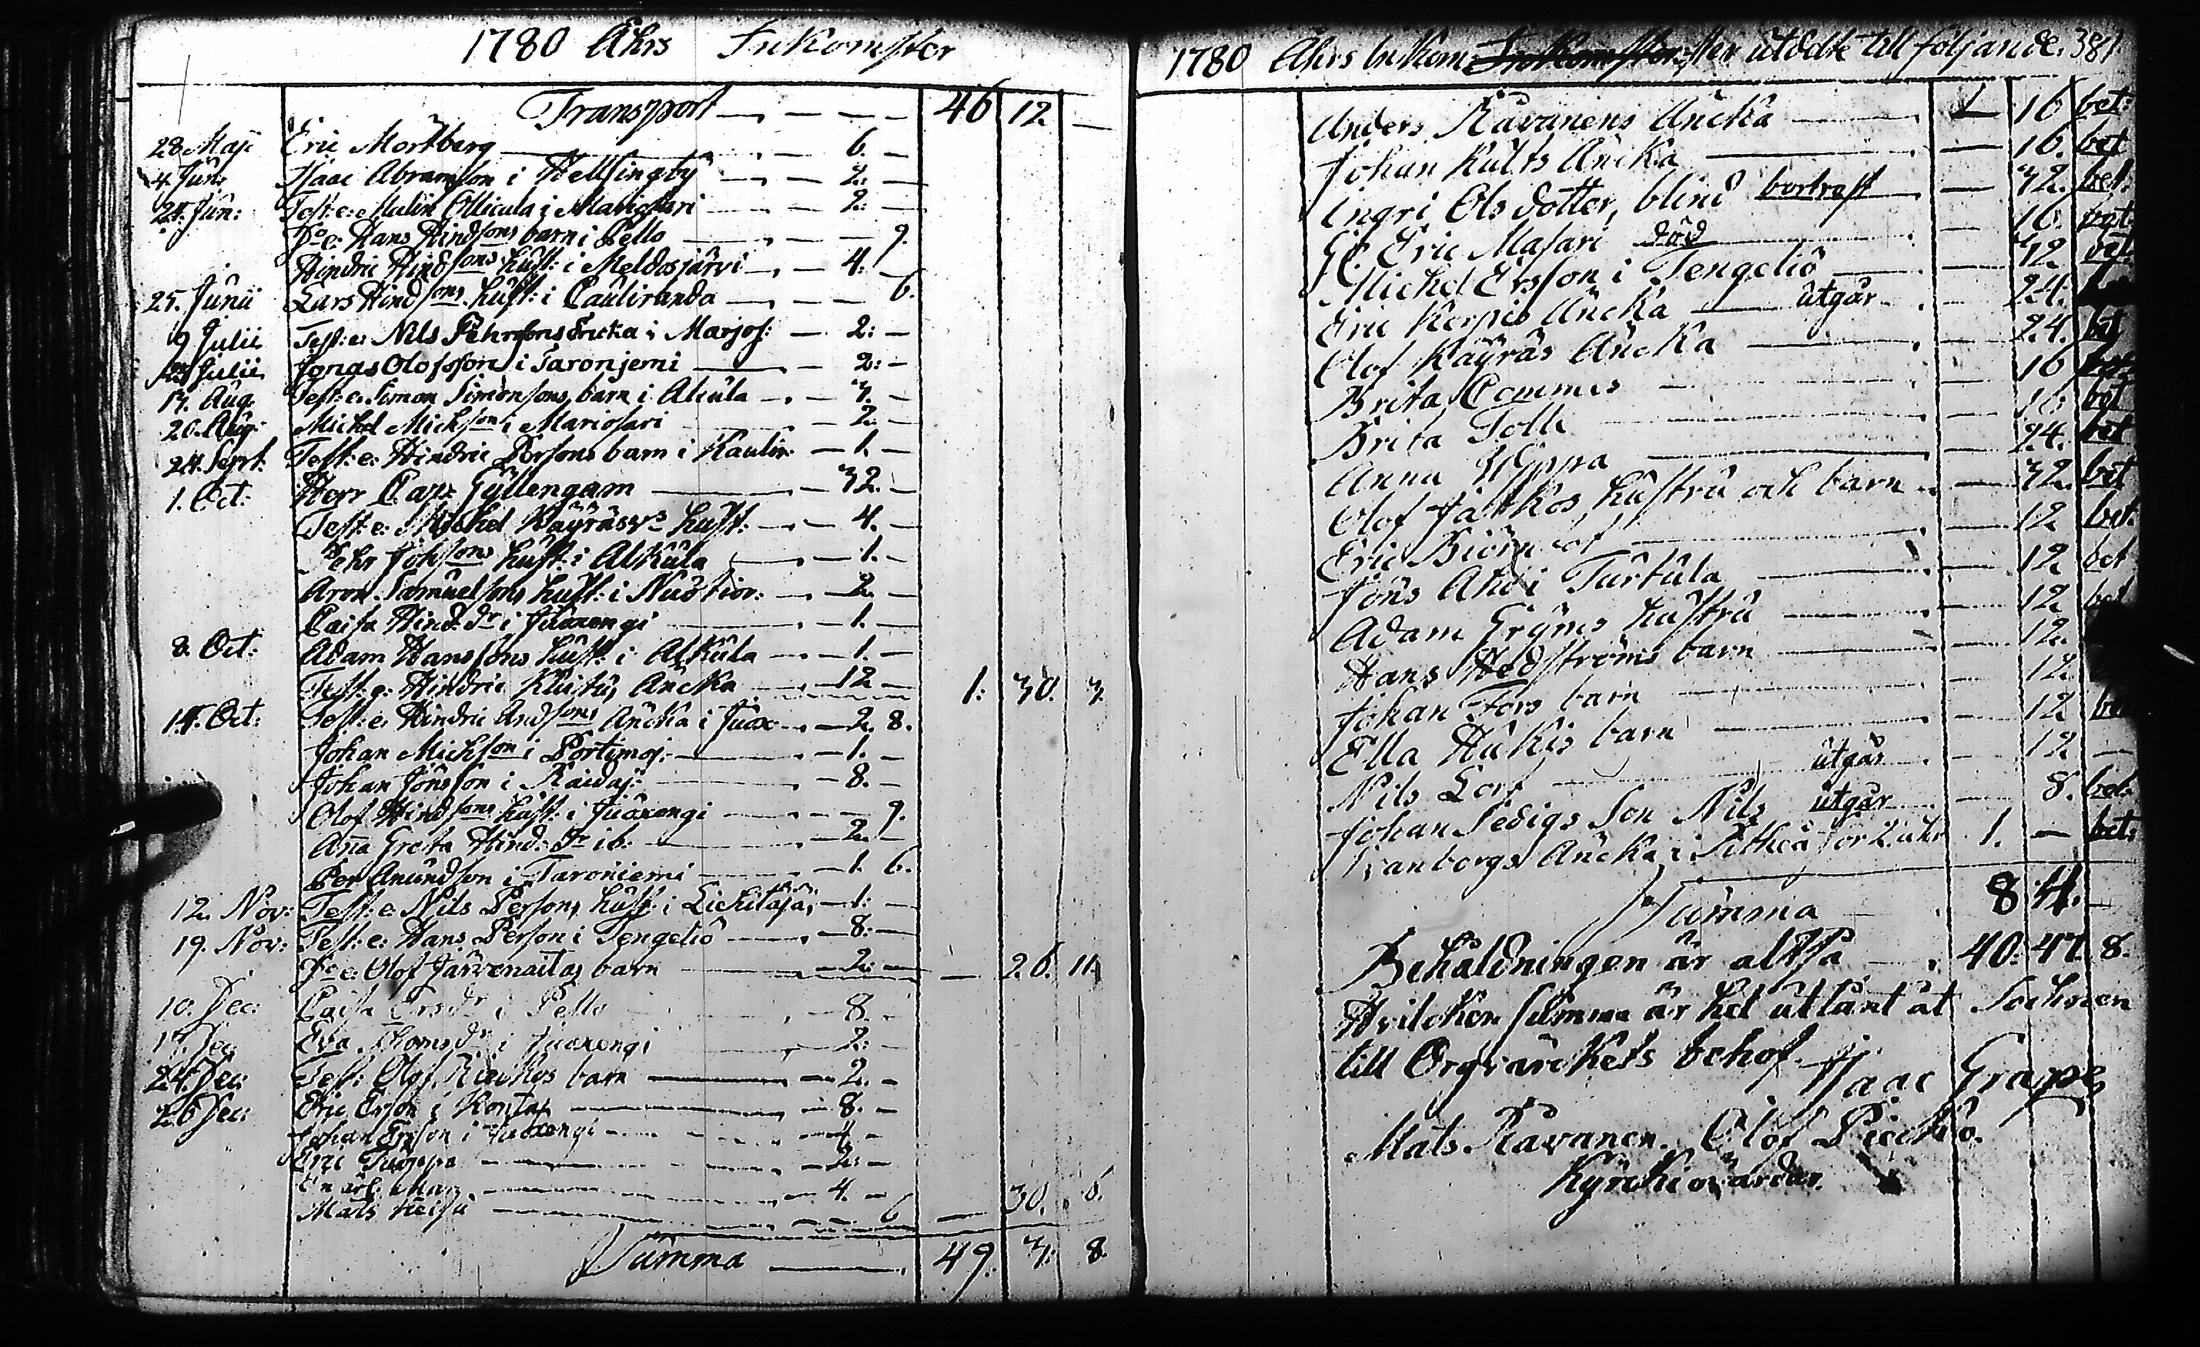 1780 Åhrs Inkomster
Transport — 46 12. —
28 Maji Eric Mörtberg — 6. —
4. Jun: Isaac Abramsson i Hellsingby — 2. —
24. Jun: Test: e: Malin Ollicula i Mariosari — 2: —
D:o e: Hans Hindsons barn i Pello — 9.
Hindric Hindsons hust: i Meldosjärvi — 4. —
25. Junii Lars Hindsons hust: i Cauliranda — 6.
9 Julii Test: e: Nils Pehrsons Encka i Marjos: — 2: —
23 Julii Jonas Olofsson i Taronjemi — 2: —
13. Aug. Test: e: Simon Simonsons barn i Alcula — 3. —
20. Aug: Michel Michson i Mariosari — 2. —
24. Sept: Test: e: Hindric Persons barn i Kaulir: — 1. —
1. Oct: Herr Capt Gyllengam — 32. —
Test: e: Michel Käyräsv:s hust: — 4. —
Pehr Johsons hust: i Alkula — 1. —
Aron Samuelsons hust: i Niustior: — 2. —
Caisa Hind: d:r i Juoxengi — 1. —
8. Oct: Adam Hanssons hust: i Alkula — 1. —
Test: e: Hindric Kluitus Äncka — 12 — 1: 30. 3.
15. Oct: Test: e: Hindric Andsons Äncka i Juox — 2. 8.
Johan Michson i Portimoj: — 1. —
Johan Jönsson i Raidaj: — 8. —
Olof Hindsons hust: i Juoxengi — 9.
Aña Greta Hind: d:r ib: — 2. —
Per Anundson i Taroniemi — 1. 6.
12. Nov: Test: e: Nils Persons hust: i Lichitäjä; — 1: —
19. Nov: Test: e: Hans Person i Tengeliö — 8: —
D:o e: Olof Järvenaitas barn — 2: — — 26. 11.
10. Dec: Caisa Ersd:r i Pello — 8. —
17 Dec Eva Thomsd:r i Juoxengi — 2: —
24. Dec: Test: Olof Riackos barn — 2. —
26 Dec: Eric Erson i Kontas — 8. —
Johan Ersson i Juoxengi — 4 —
Eric Tuorpa — 2: —
En ärl. Man — 4. —
Mats Heisu — 6 — 30. 6.
Summa — 49. 3. 8.
1780 Åhrs Inkomster utdelte till följande. 381
Anders Rävanens Äncka — 16 bet:
Johan Kults Äncka — 16. bet
Ingri Olsdotter, blind bortrest — 32. bet:
Gl. Eric Masari död — 16. bet:
Michel Ersson i Tengeliö — 32 bet
Eric Kerpis Äncka — utgår — 24.
Olof Käyräs Äncka — 24. bet
Brita Commes — 16 bet
Brita Tolle — 16 bet
Anna Yppa — 24. bet
Olof Jatkos hustru och barn — 32. bet
Eric Biörn — 12 bet:
Jöns Aho i Turtula — 12 bet
Adam Gryms hustru — 12 bet
Hans Hedströms barn — 12.
Johan Fors barn — 12
Ella Hukis barn — 12 bet
Nils Lorf utgår — 12 —
Johan Sedigs Son Nils utgår — 8. bet:
Äncka i Pitheå för 2. åhr 1. — bet:
Summa 8 4. —
Behåldningen är altså 40: 47. 8.
Hvilcken summa är hel utlånt åt Sochnen
till Orgvärckets behof. Isaac Grape
Mats Rävanen. Olof Pieckiö.
Kyrckiovärdar.